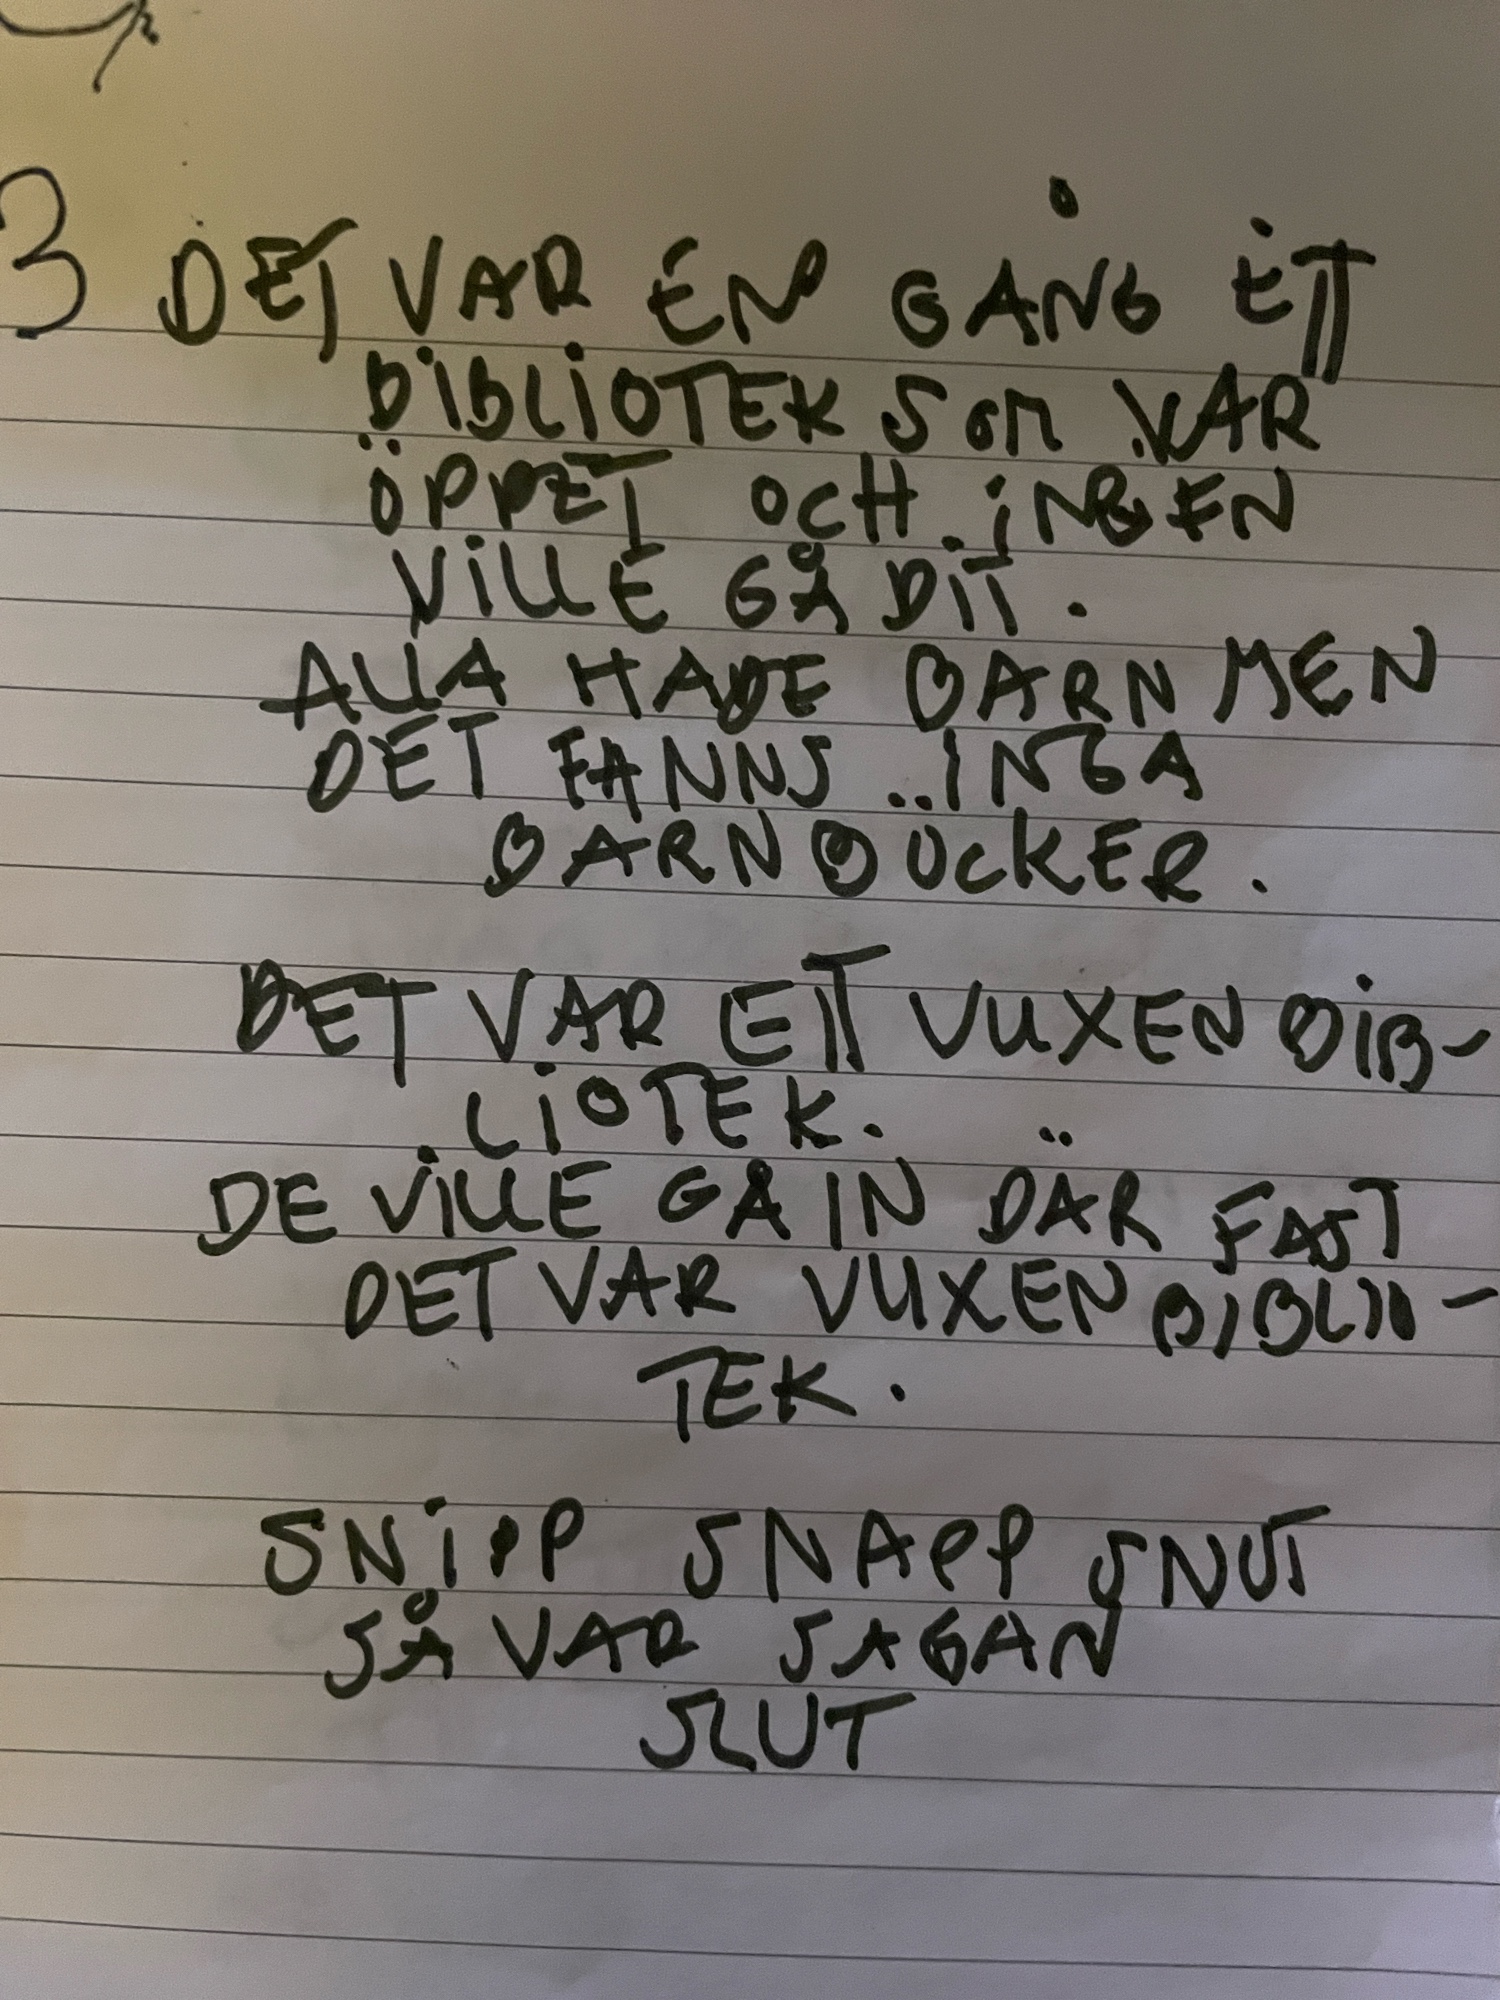 3 DET VAR EN GÅNG ETT
BIBLIOTEK SOM VAR
ÖPPET OCH INGEN
VILLE GÅ DIT.
ALLA HADE BARN MEN
DET FANNS INGA
BARNBÖCKER.
DET VAR ETT VUXENBIB-
LIOTEK.
DE VILLE GÅ IN DÄR FAST
DET VAR VUXENBIBLIO-
TEK.
SNIPP SNAPP SNUT
SÅ VAR SAGAN
SLUT